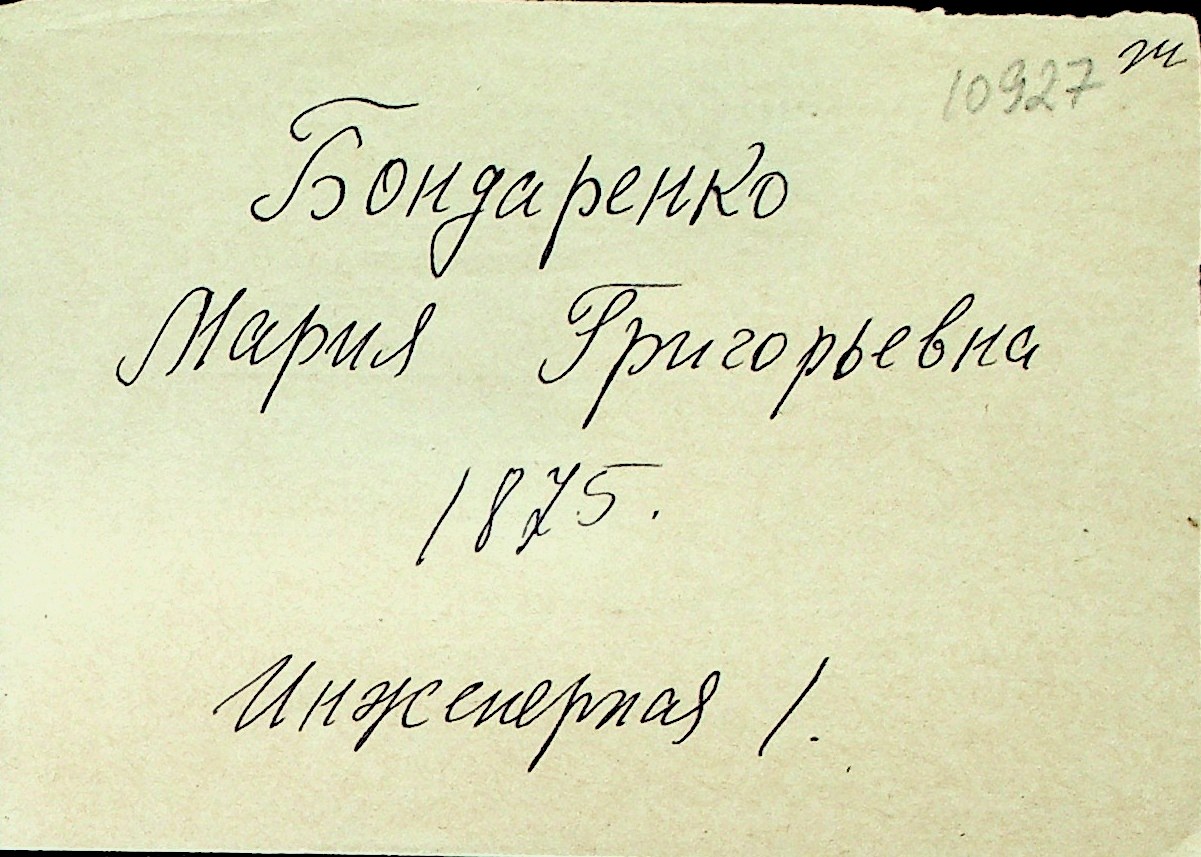 10927 ж
Бондаренко
Мария Григорьевна
1875.
Инженерная 1.